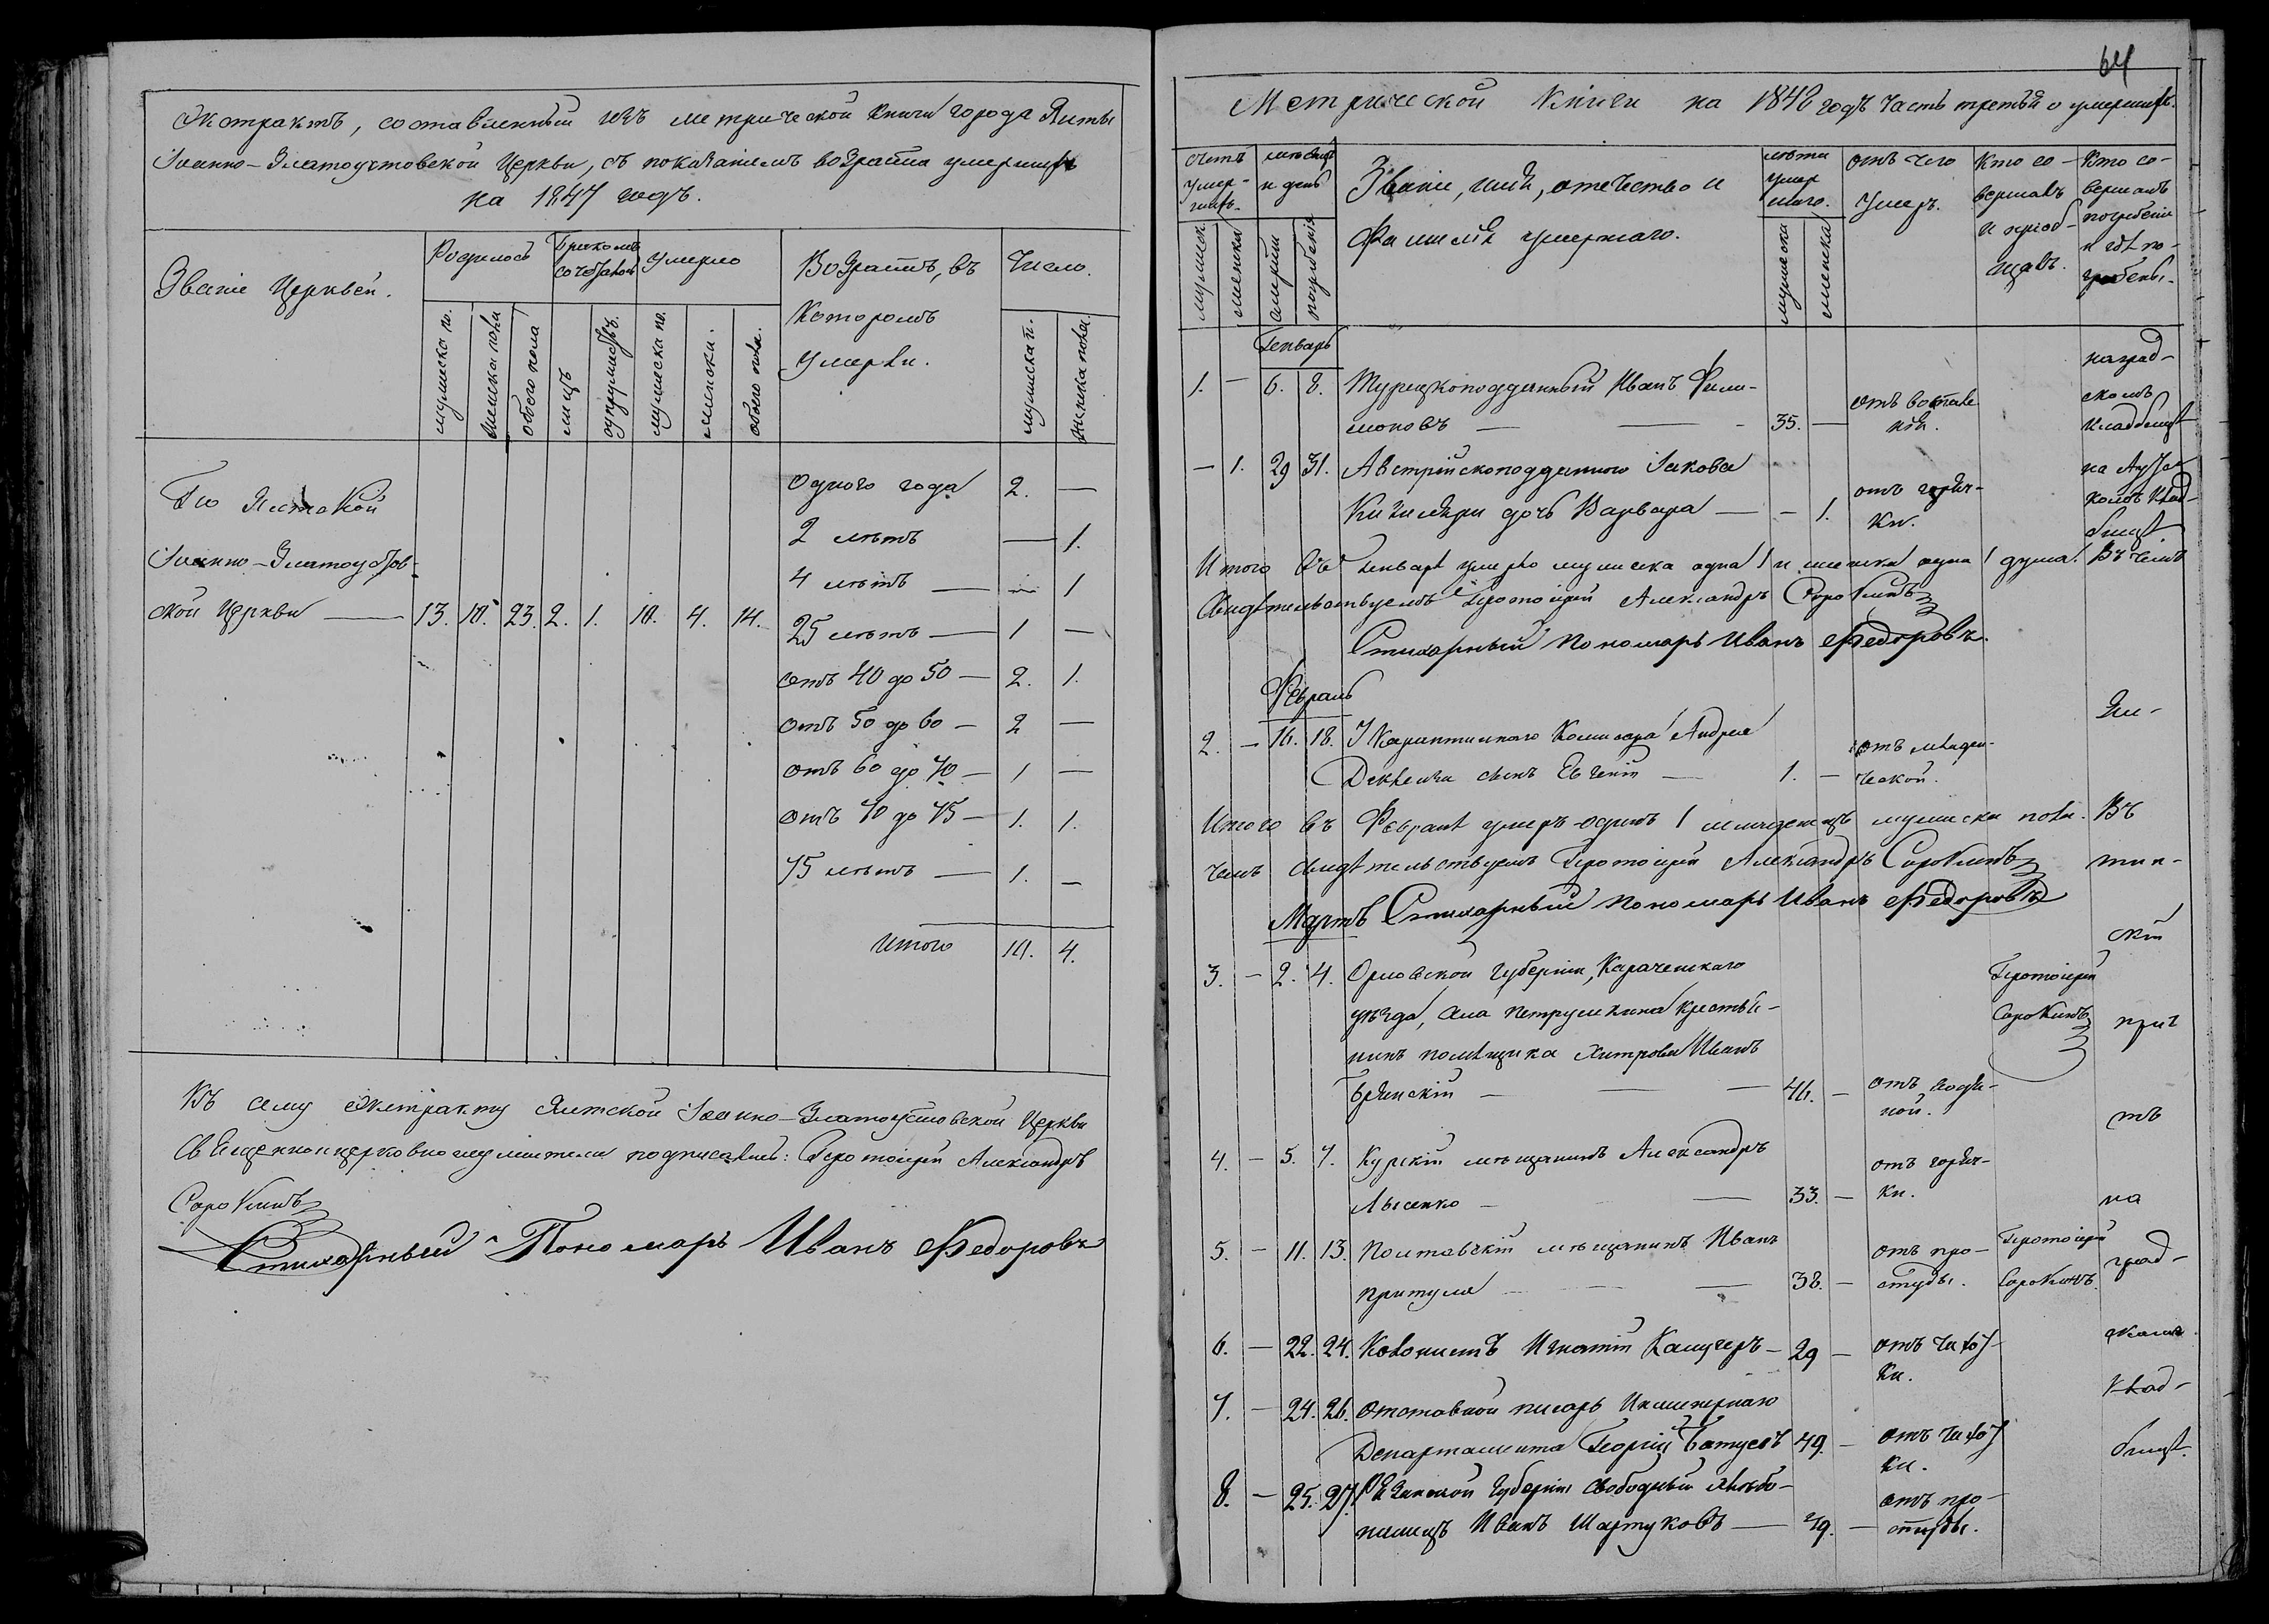 Экстрактъ, составленный изъ метрической книги города Ялты
Іоанно-Златоустовской Церкви, съ показаніемъ возраста умершихъ
на 1847 годъ.
Званіе Церквей.
Родилось
Бракомъ сочетались
Умерло
Возрастъ, въ
Котoромъ
Умерли.
Число.
мужеска по.
женска пола
обоего пола
лицъ
супружествъ.
мужеска по.
женска.
обоего пола.
мужеска п.
женска пола.
По Ялтской
Іоанно-Златоустов-
ской Церкви — 13. 10. 23. 2. 1. 10. 4. 14.
Одного года 2. —
2 лѣтъ — 1.
4 лѣтъ — 1
25 лѣтъ — 1 —
отъ 40 до 50 — 2. 1.
отъ 50 до 60 — 2 —
отъ 60 до 70 — 1 —
отъ 70 до 75 — 1. 1.
75 лѣтъ — 1. —
Итого 10. 4.
Къ сему экстракту Ялтской Іоанно-Златоустовской Церкви
Священноицерковнослужители подписались: Протоіерей Александръ
Сорокинъ
Стихарный Пономарь Иванъ Федоровъ
64
Метрической Книги на 1848 годъ часть третья о умершихъ.
счетъ умер-шихъ.
мѣсяцъ и день
Званіе, имя, отечество и
Фамилія умершаго.
лѣта умер шаго.
отъ чего
Умеръ.
Кто со-
вершалъ
и пріоб-
щалъ.
Кто со-
вершалъ
погребеніе
и гдѣ по-
гребены.
мужеск.
женска
смерти
погребенія
мужеска
женска
Генварь
1. — 6. 8. Турецкоподданный Иванъ Фили-
моновъ — 35. — отъ воспале нія.
на град-
скомъ
кладбищѣ
— 1. 29 31. Австрійскоподданного Іакова
дочь Варвара — — 1. отъ горяч-
ки.
на
комъ клад-
бищѣ
Итого въ Генварѣ умерло мужеска одна 1 и женска одна 1 душа. Въ чемъ
свидѣтельствуемъ Протоіерей Александръ Сорокинъ
Стихарный Пономарь Иванъ Федоровъ.
Февраль
2. — 16. 18. Карантиннаго Комисара Андрея
сынъ Евгеній — 1. — отъ младен-
ческой.
Итого въ Февралѣ умеръ одинъ 1 младенецъ мужеска пола. Въ
чемъ свидѣтельствуемъ Протоіерей Александръ Сорокинъ
Стихарный Пономарь Иванъ Федоровъ
Мартъ
3. — 2. 4. Орловской Губерніи, Карачевскаго
уѣзда, села Петрушкина крестья-
нинъ помѣщика Хитрова Иванъ
Брянскій — 46. — отъ водя-
ной.
Протоіерей
Сорокинъ
4. — 5. 7. Курскій мѣщанинъ Александръ
Лысенко — 33. — отъ горяч-
ки.
5. — 11. 13. Полтавскій мѣщанинъ Иванъ
Притуля — 38. — отъ про-
студы.
Протоіерей
Сорокинъ.
6. — 22. 24. Колонистъ Игнатій — 29 — отъ чахот
ки.
7. — 24. 26. Отставной писарь Инженернаго
Департамента Георгій Батуевъ 49. — отъ чахот
ки.
8. — 25. 27. Рязанской Губерніи свободный хлѣбо-
пашецъ Иванъ Шартуковъ — 29. — отъ про-
студы.
на
град-
скомъ
клад-
бищѣ.